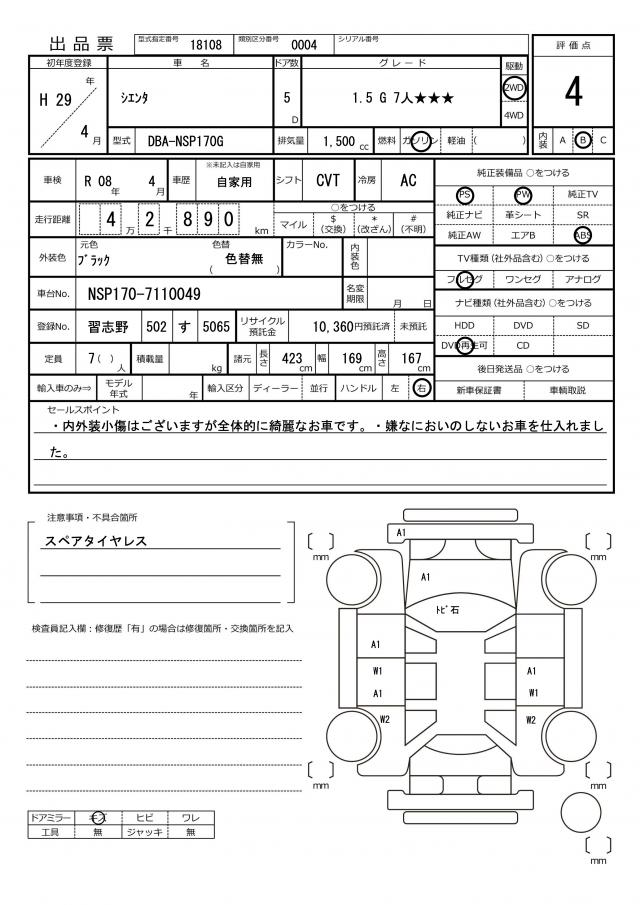 出品票
型式指定番号 18108 類別区分番号 0004 シリアル番号
評価点
4
内装 A B C
初年度登録 車名 ドア数 グレード 駆動
H 29 年 4 月
シエンタ
5 D
1.5 G 7人★★★
2WD
4WD
型式 DBA-NSP170G 排気量 1,500 cc 燃料 ガソリン 軽油 ( )
車検 R 08 年 4 月 車歴 ※未記入は自家用 自家用 シフト CVT 冷房 AC
走行距離 4 万 2 千 8 9 0 km
○をつける
マイル $ (交換) * (改ざん) # (不明)
外装色 元色 ブラック 色替 ( 色替無 ) カラーNo. 内装色
車台No. NSP170-7110049 名変期限 月 日
登録No. 習志野 502 す 5065 リサイクル預託金 10,360 円預託済 未預託
定員 7 ( ) 人 積載量 kg 諸元 長さ 423 cm 幅 169 cm 高さ 167 cm
輸入車のみ⇒ モデル年式 年 輸入区分 ディーラー 並行 ハンドル 左 右
純正装備品 ○をつける
PS PW 純正TV
純正ナビ 革シート SR
純正AW エアB ABS
TV種類 (社外品含む) ○をつける
フルセグ ワンセグ アナログ
ナビ種類 (社外品含む) ○をつける
HDD DVD SD
DVD再生可 CD
後日発送品 ○をつける
新車保証書 車輌取説
セールスポイント
・内外装小傷はございますが全体的に綺麗なお車です。・嫌なにおいのしないお車を仕入れまし
た。
注意事項・不具合箇所
スペアタイヤレス
検査員記入欄：修復歴「有」の場合は修復箇所・交換箇所を記入
ドアミラー キズ ヒビ ワレ
工具 無 ジャッキ 無
A1
mm mm
A1
トビ石
A1
W1 A1
A1 W1
W2 W2
mm mm
mm